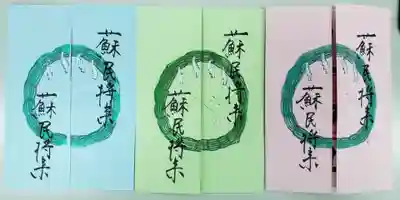 蘇民将来
蘇民将来
蘇民将来
蘇民将来
蘇民将来
蘇民将来